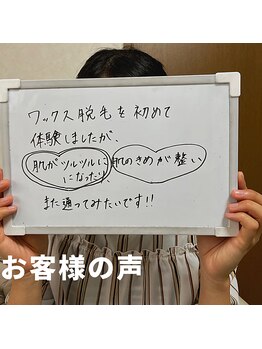 ワックス脱毛を初めて
体験しましたが、
肌がツルツルに 肌のきめが整い
になったり、
また通ってみたいです!!
お客様の声